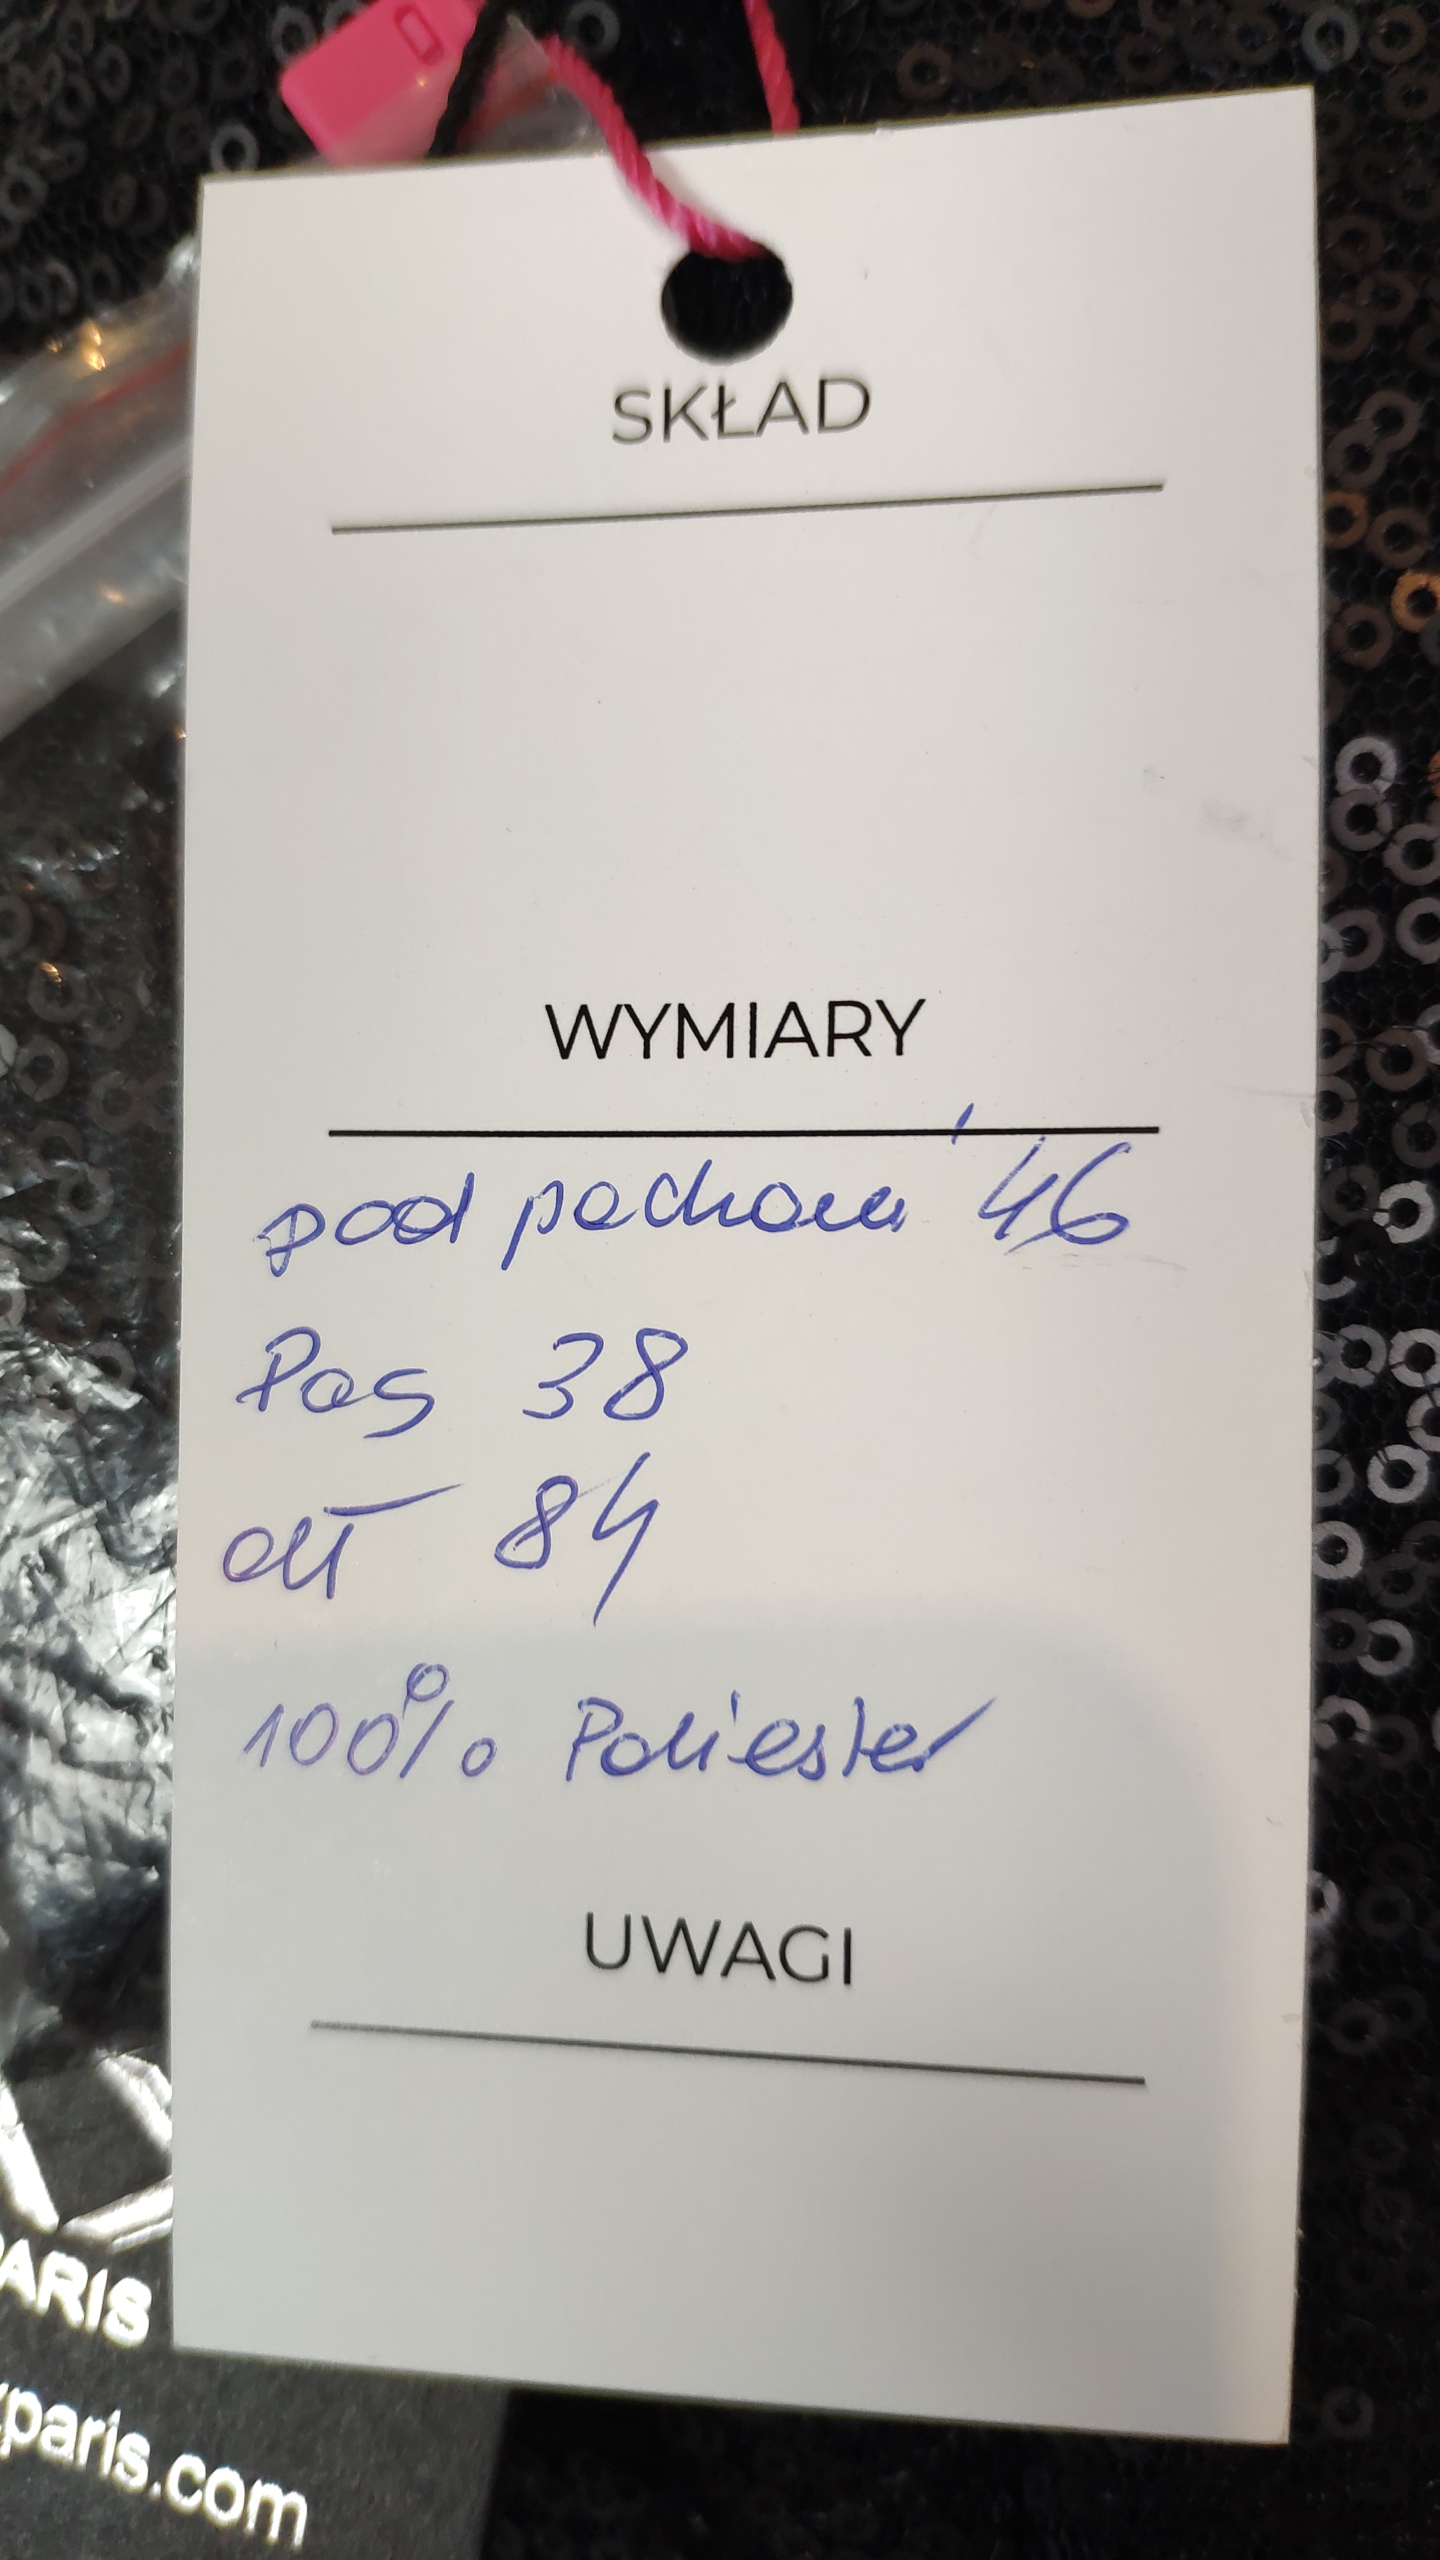 SKŁAD
WYMIARY
pod pachami 46
Pas 38
dł 84
100% Poliester
UWAGI
PARIS
paris.com